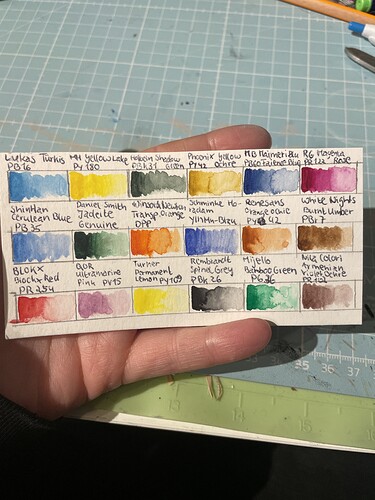 Lukas Turkis
PB16
MH Yellow Lake
PY180
Holbein Shadow
PBk31 Green
Phoenix Yellow
PY42 Ochre
MB Maimeri Blu
Blue
RG Magenta
PR122 Rose
ShinHan
Cerulean Blue
PB35
Daniel Smith
Jadeite
Genuine
Winsor&Newton
Transp. Orange
DPP
Schmincke Ho-
radam
YInMn-Blau
Renesans
Orange
42
White Nights
Burnt Umber
PBr7
BLOKX
Blockx Red
PR254
QOR
Ultramarine
Pink PV15
Turner
Permanent
Lemon py109
Rembrandt
Spinel Grey
PBk26
Mijello
Bamboo Green
PG36
Nila Colori
Armenian
Violet Ochre
35 36 37